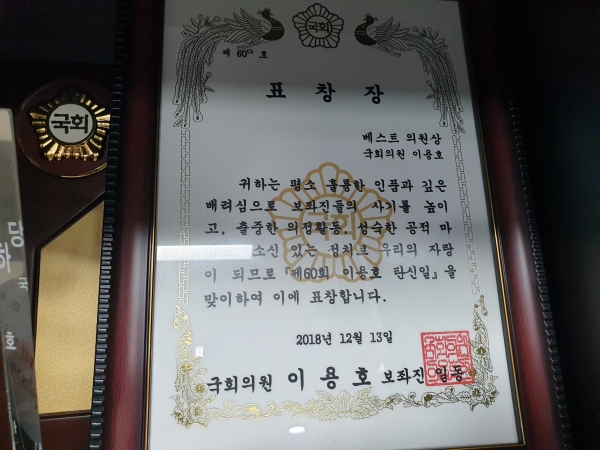 국회
제 60th 호
표 창 장
베스트 의원상
국회의원 이용호
귀하는 평소 훌륭한 인품과 깊은
배려심으로 보좌진들의 사기를 높이
고, 출중한 의정활동, 성숙한 공적 마
소신 있는 정치로 우리의 자랑
이 되므로 『제60회 이용호 탄신일』을
맞이하여 이에 표창합니다.
2018년 12월 13일
국회의원 이 용 호 보좌진 일동
국회